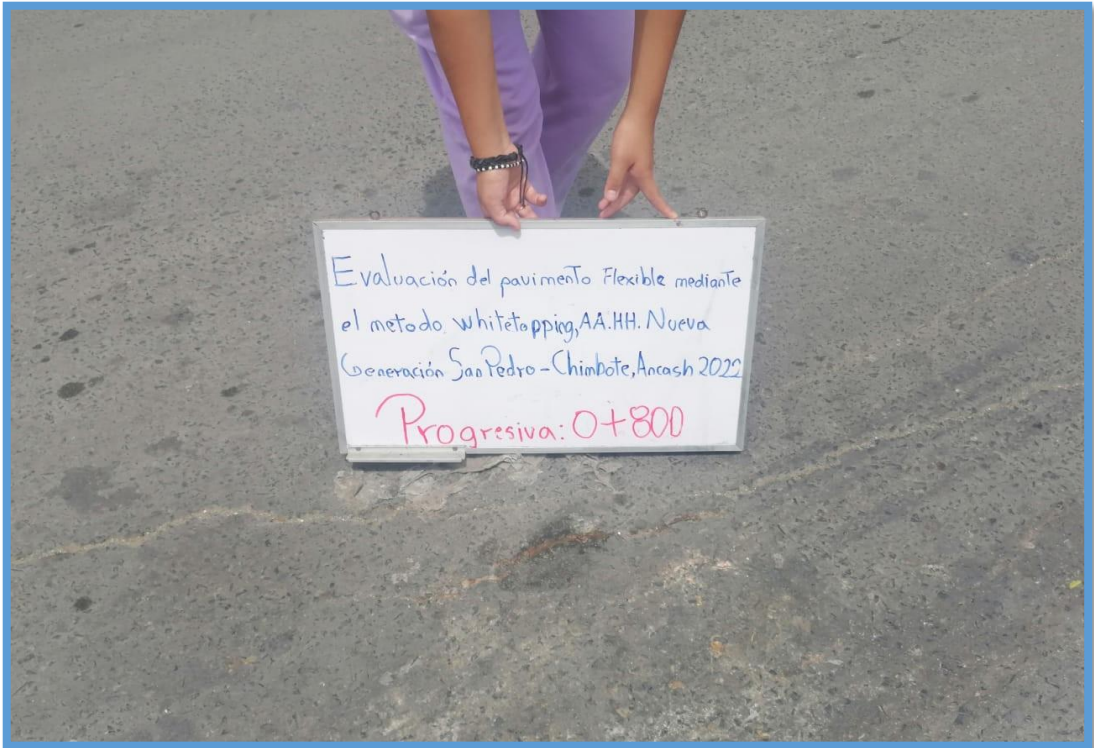 Evaluación del pavimento Flexible mediante
el metodo whitetopping, AA.HH. Nueva
Generación San Pedro - Chimbote, Ancash 2022
Progresiva: 0+800